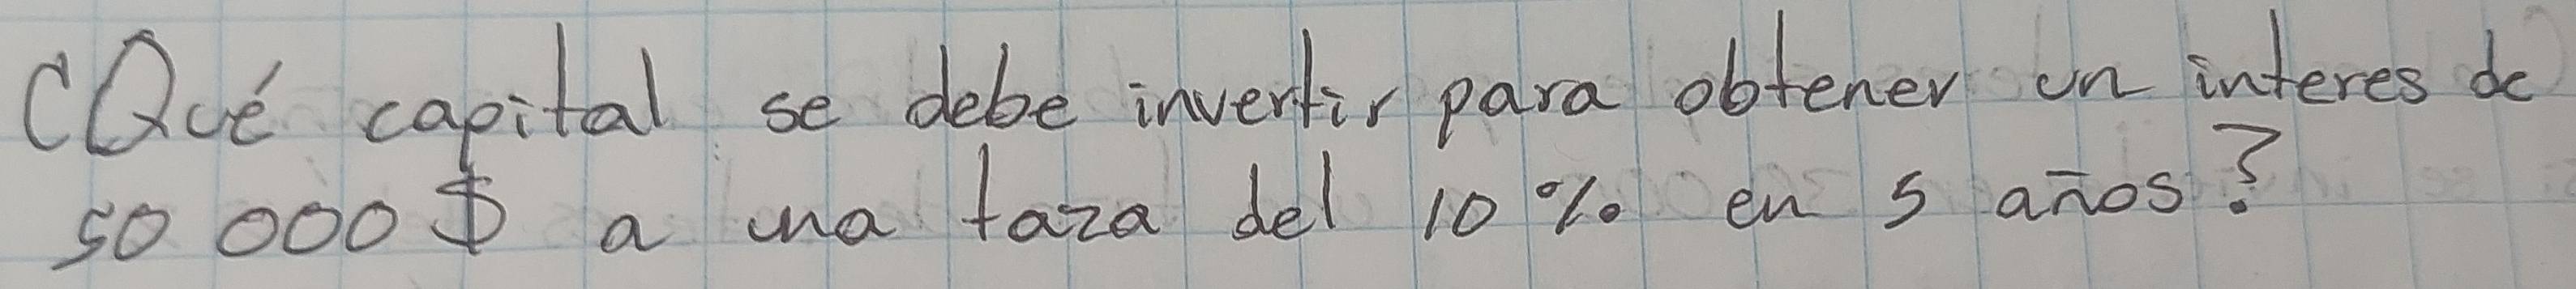 ¿Qué capital se debe invertir para obtener un interes de
50 000 $ a una taza del 10 % en 5 años?